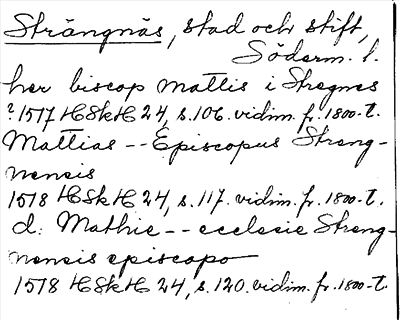 Strängnäs, stad och stift,
Söderm. l.
her biscop mattis i Stregnes
? 1517 HSkH 24, s. 106. vidim. fr. 1800-t.
Mattias -- Episcopus Streng-
nensis
1518 HSkH 24, s. 117. vidim. fr. 1800-t.
d. Mathie -- ecclesie Streng-
nensis episcopo
1518 HSkH 24, s. 120. vidim. fr. 1800-t.